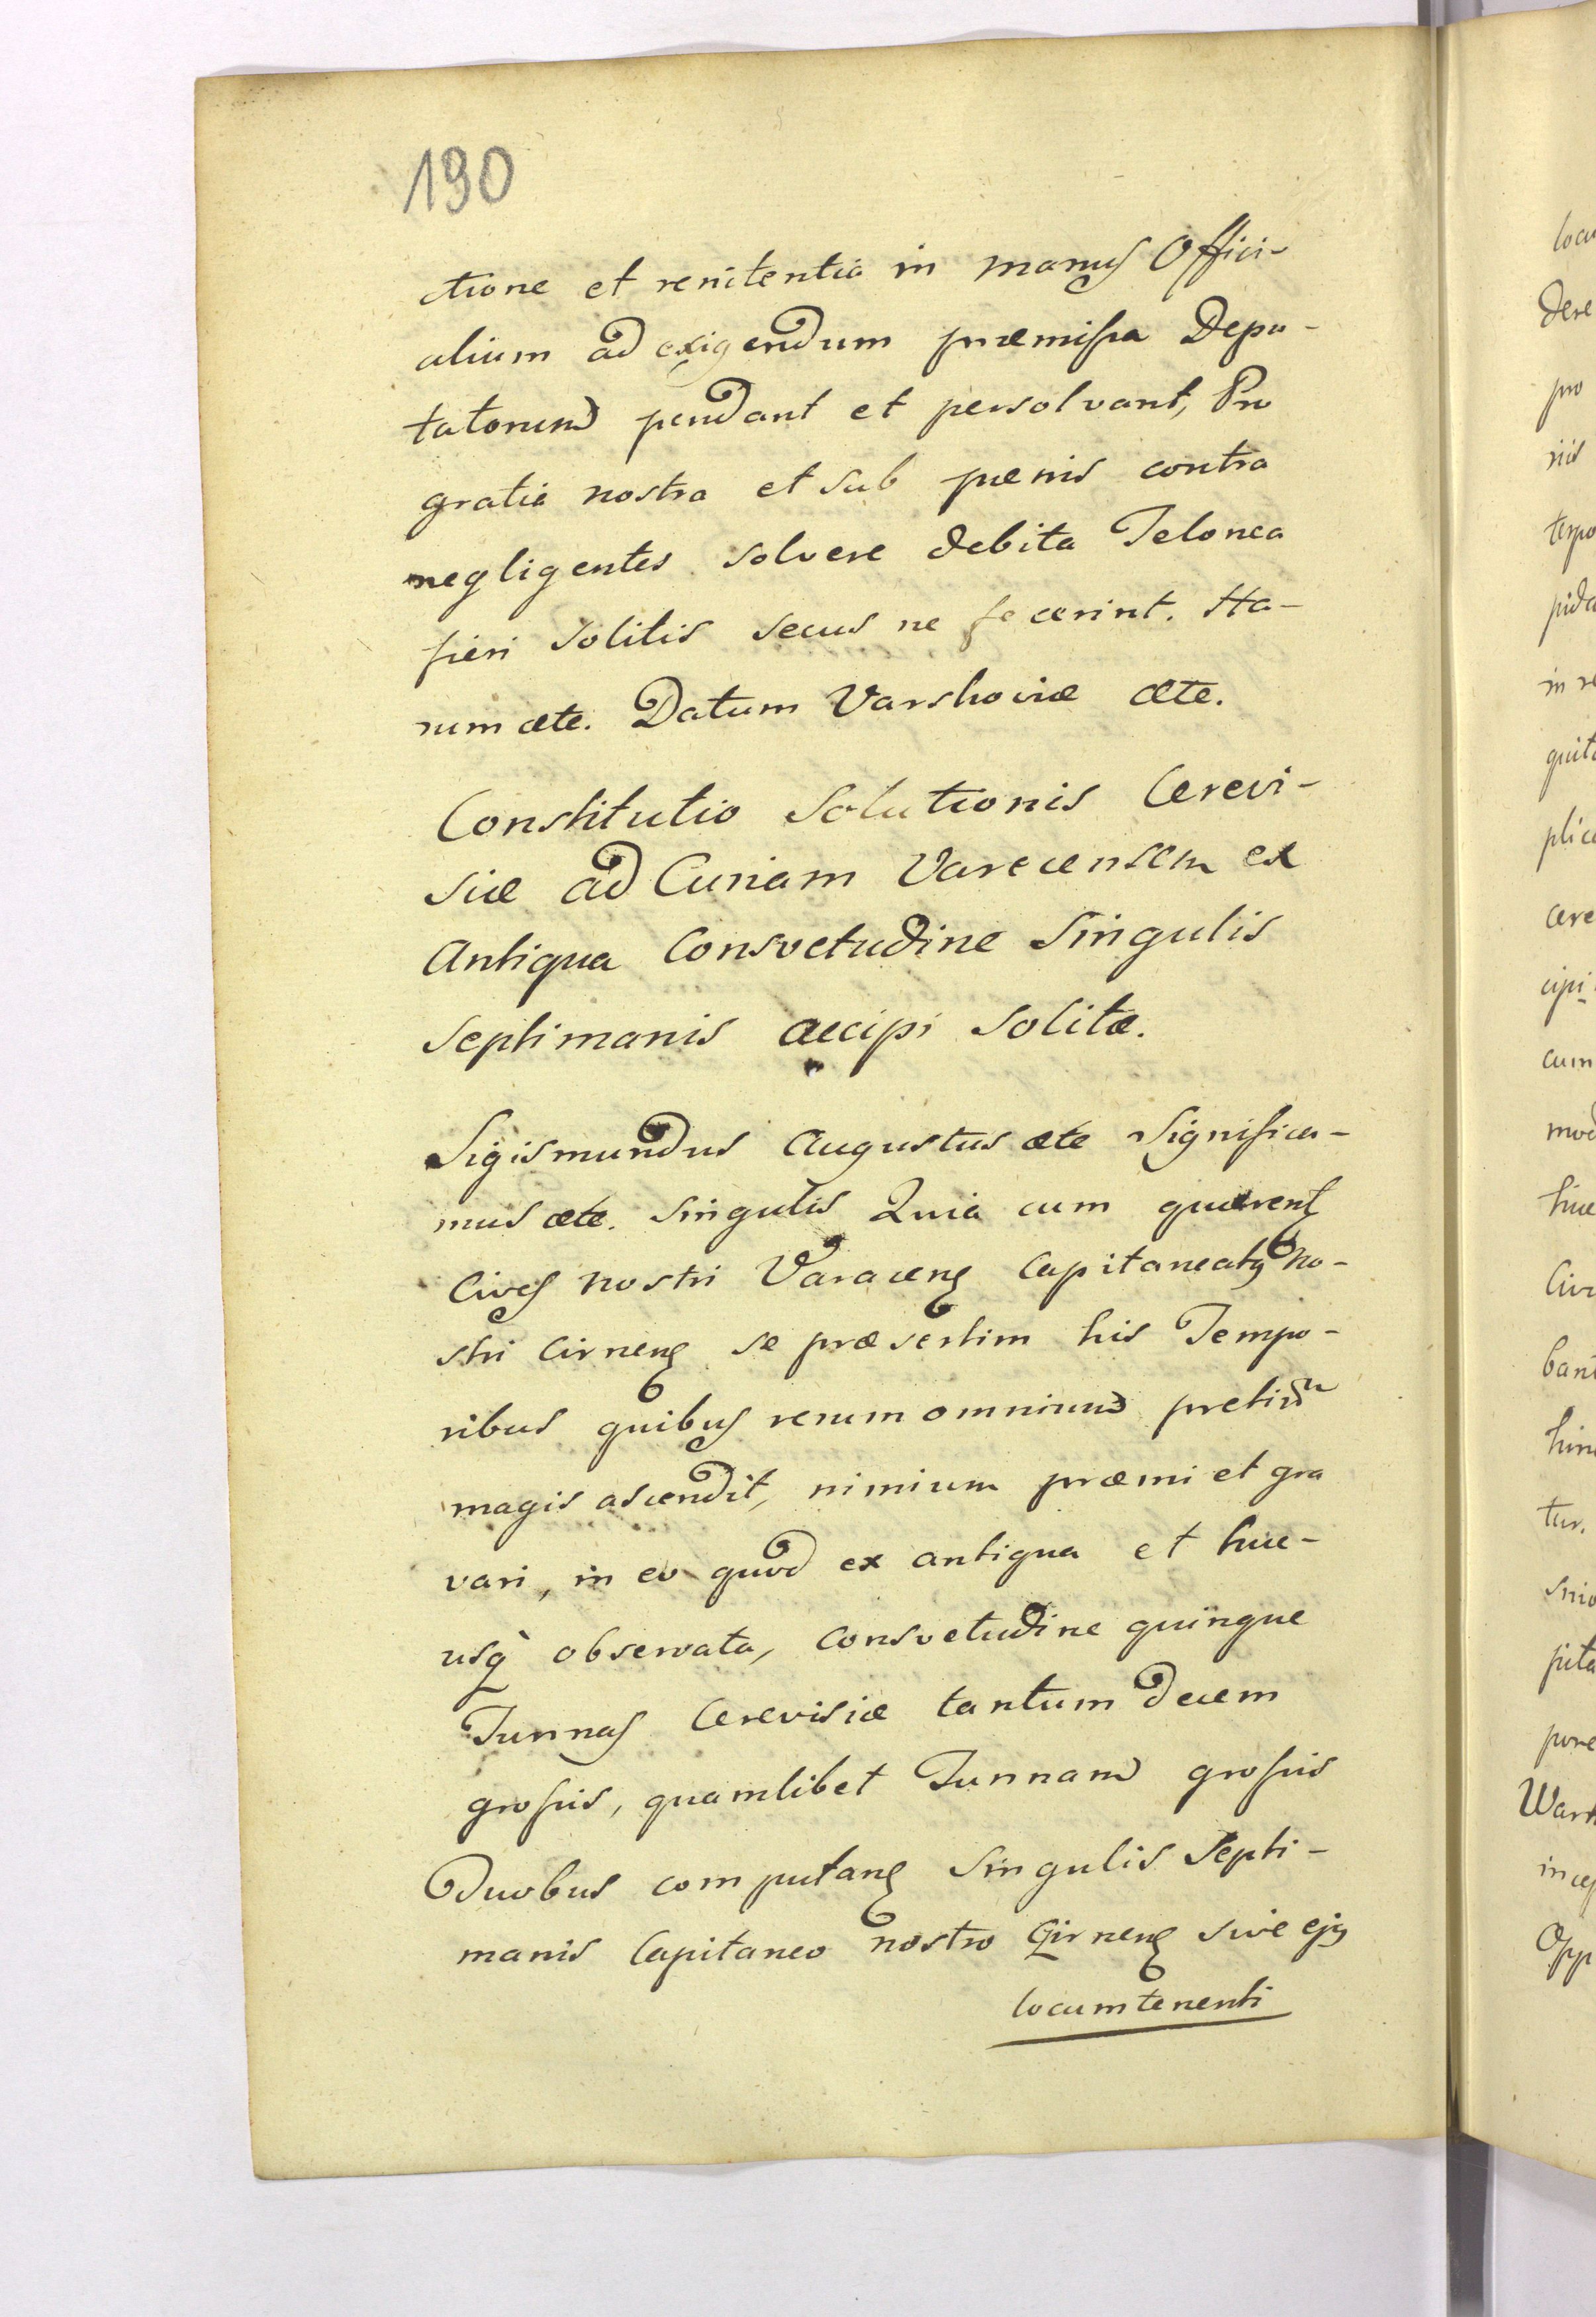 190
ctione et renitentia in manus Offici-
alium ad exigendum præmissa Depu-
tatorum pendant et persolvant, Pro
gratia nostra et sub pænis contra
negligentes solvere debita Telonea
fieri solitis secus ne fecerint. Ha-
rum ætc. Datum Varshoviæ ætc.
Constitutio Solutionis Cerevi-
siæ ad Curiam Varecensem ex
Antiqua Consvetudine Singulis
Septimanis accipi Solitæ.
Sigismundus Augustus ætc Significa-
mus ætc. Singulis Quia cum quærent
Cives nostri Varacens Capitaneatus no-
stri Cirnens se præsertim his Tempo-
ribus quibus rerum omnium pretiu
magis ascendit, nimium præmi et gra
vari, in eo quod ex antiqua et huc-
usq observata, Consvetudine quinque
Tunnas Cerevisiæ tantum decem
grossis, quamlibet Tunnam grossis
Duobus computans Singulis Septi-
manis Capitaneo nostro Cirnens sive ejus
locumtenenti
locu
dere
pro
riis
tempo
pida
in re
quita
plica
cere
cipi
cum
mod
huc
Civi
bant
hinc
tur.
pita
pore
Wars
incep
Opp